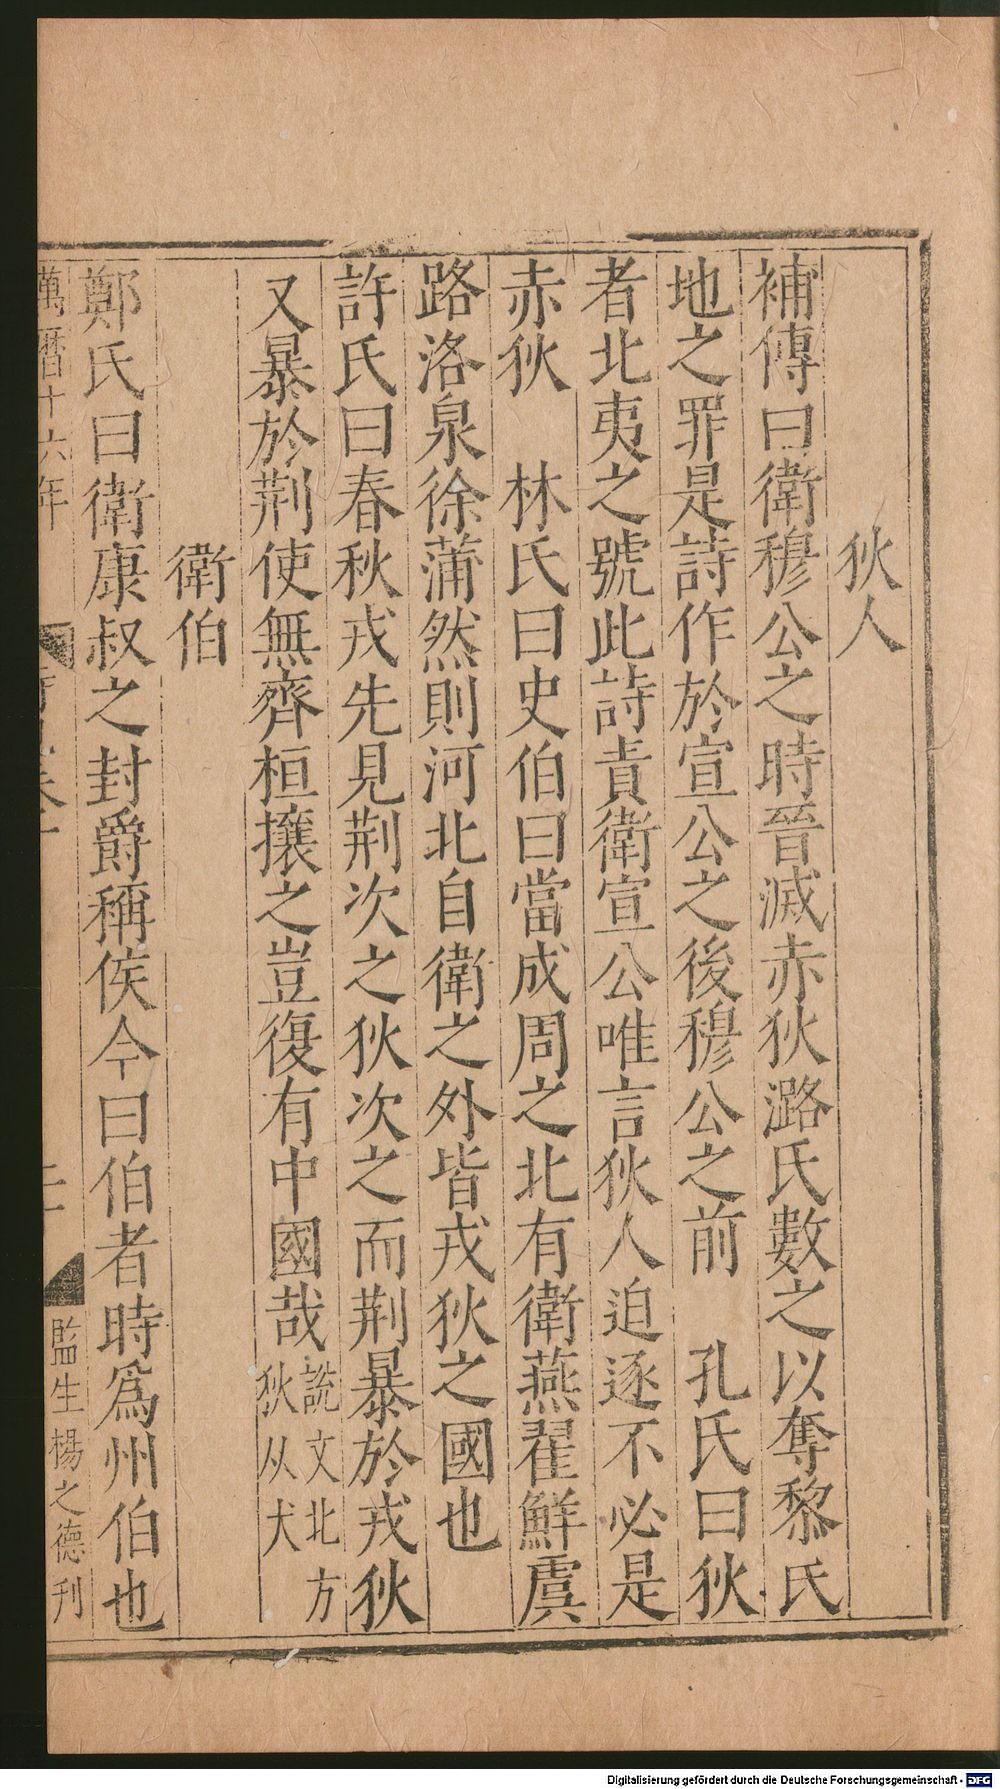 狄人
補傳曰衛穆公之時晉滅赤狄潞氏數之以奪黎氏
地之罪是詩作於宣公之後穆公之前　孔氏曰狄
者北夷之號此詩責衛宣公唯言狄人迫逐不必是
赤狄　林氏曰史伯曰當成周之北有衛燕翟鮮虞
路洛泉徐蒲然則河北自衛之外皆戎狄之國也
許氏曰春秋戎先見荆次之狄次之而荆暴於戎狄
又暴於荆使無齊桓攘之豈復有中國哉說文北方狄从犬
衛伯
鄭氏曰衛康叔之封爵稱侯今曰伯者時爲州伯也
萬曆十六年
監生楊之德刊
Digitalisierung gefördert durch die Deutsche Forschungsgemeinschaft - DFG